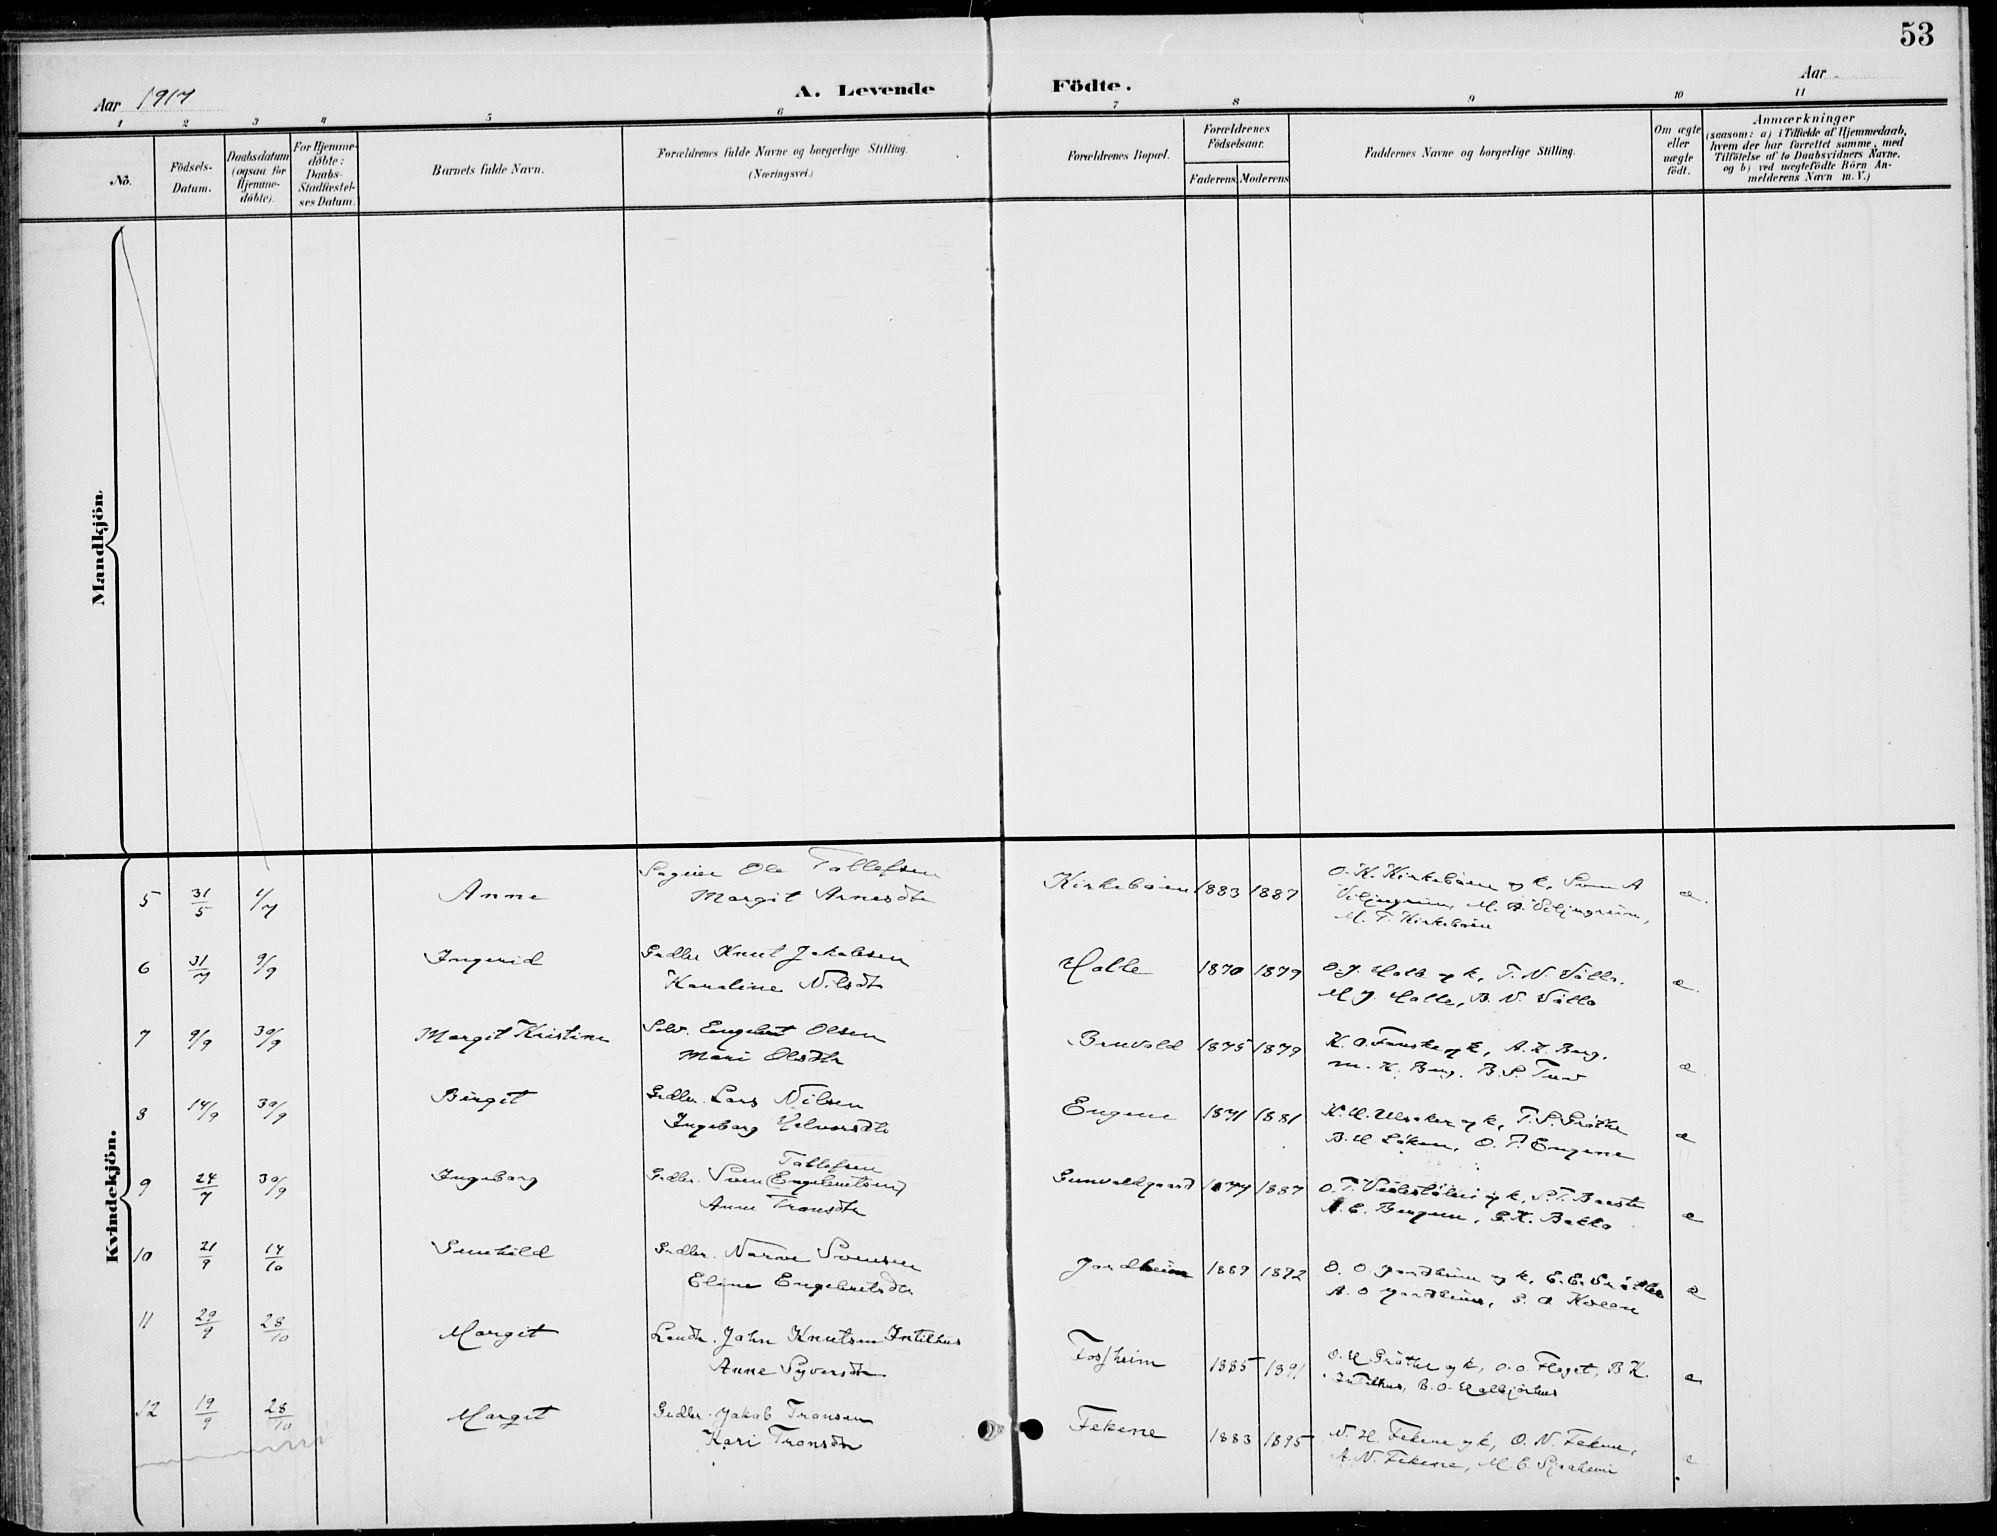 53
Aar 1917
A. Levende Födte.
Aar
1 2 3 4 5 6 7 8 9 10 11
No.
Födsels-Datum.
Daabsdatum (ogsaa for Hjemmedöbte).
For Hjemmedöbte: Daabs-Stadfæstelses Datum.
Barnets fulde Navn.
Forældrenes fulde Navne og borgerlige Stilling.
(Næringsvei.)
Forældrenes Bopæl.
Forældrenes Födselsaar.
Faderens. Moderens.
Faddernes Navne og borgerlige Stilling.
Om ægte eller uægte födt.
Anmærkninger
(saasom: a) i Tilfælde af Hjemmedaab,
hvem der har forrettet samme, med
Tilföielse af to Daabsvidners Navne.
og b) ved uægtefödte Börn Anmelderens Navn m. V.)
Mandkjön.
Kvindekjön.
5 31/5 1/7 Anne Ole Tollefsen
Margit Arnesdtr Kirkebøen 1883 1887 O. K. Kirkebøen og k,
M. T. Kirkebøen
6 31/7 9/9 Ingerid Gbdbr. Knut Jakobsen
Karoline Nilsdtr Halle 1870 1879 O. J. Halle og k, T. N.
M. J. Halle, B. N.
7 9/9 30/9 Margit Kristine Selv. Engebret Olsen
Mari Olsdtr Bruvold 1875 1879 K. O. og k, A. K. Berg,
M. K. Berg, B. S.
8 14/9 30/9 Birgit Gbdbr. Lars Nilsen
Ingeborg Engene 1871 1881 K. H. Ulsaker og k, T. S. Grøthe
B. H. Løken, O. T. Engene
9 24/7 30/9 Ingeborg Gbdbr. Sven (Engebretsen) Tollefsen
Anne Tronsdtr Gunvaldgaard 1877 1887 O. T. og k, S. T.
E. Bergum, G. K. Bakko
10 21/9 14/10 Gunhild Gbdbr. Narve Svensen
Eline Engebretsdtr Jordheim 1889 1892 O. O. Jordheim og k, E. E.
A. O. Jordheim, S. O.
11 29/9 28/10 Margit John Knutsen Intelhus
Anne Syversdtr Fossheim 1885 1891 O. H. Grøthe og k, O. O. Flaget, B. K.
Intelhus, B. O.
12 19/9 28/10 Margit Gbdbr. Jakob Tronsen
Kari Tronsdtr Fekene 1883 1895 N. H. Fekene og k, O. N. Fekene,
A. N. Fekene, M. E.